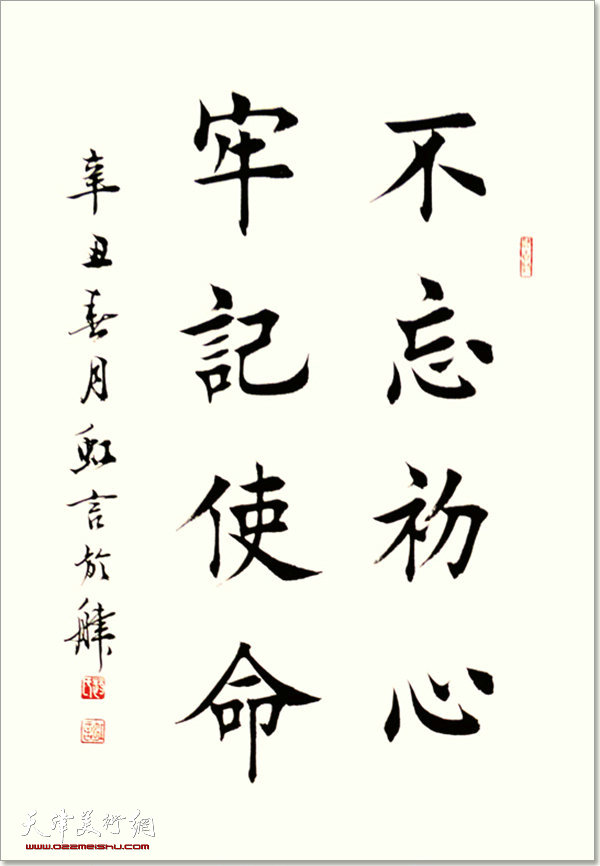 不忘初心
牢記使命
辛丑春月虹言於
天津美術網
www.022meishu.com